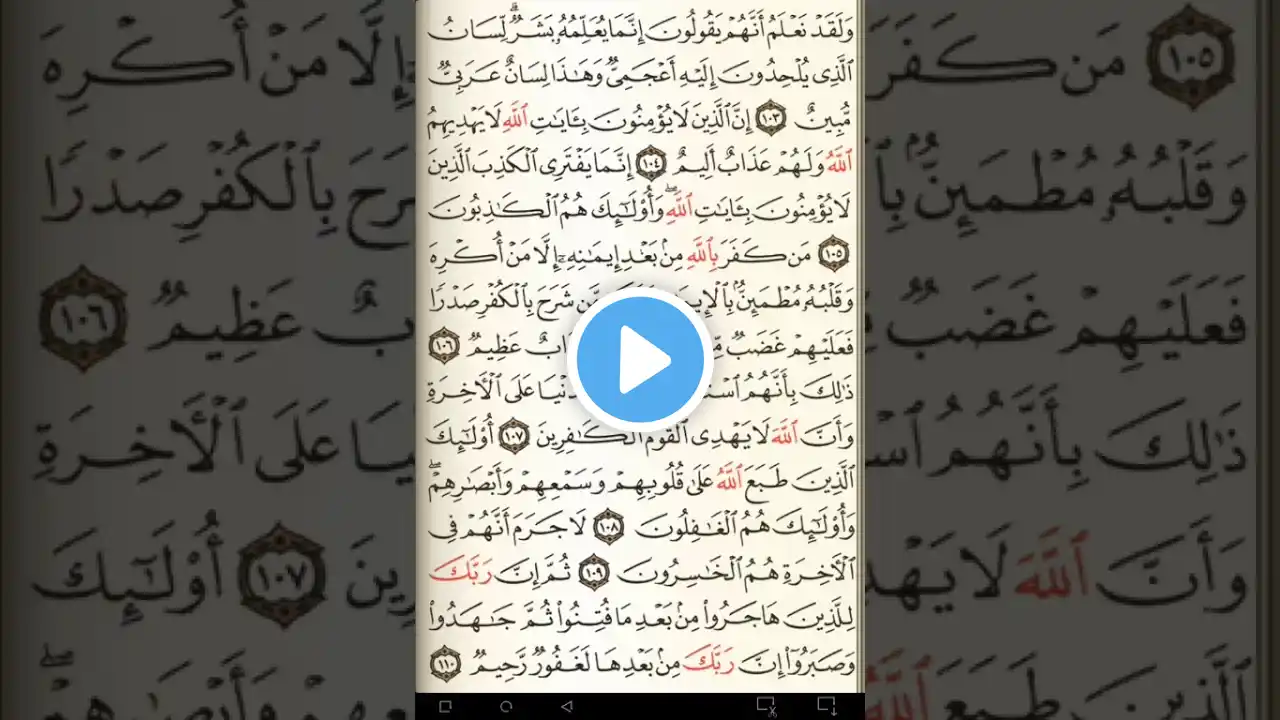 وَلَقَدْ نَعْلَمُ أَنَّهُمْ يَقُولُونَ إِنَّمَا يُعَلِّمُهُۥ بَشَرٌۗ لِّسَانُ
ٱلَّذِى يُلْحِدُونَ إِلَيْهِ أَعْجَمِىٌّ وَهَٰذَا لِسَانٌ عَرَبِىٌّ
مُّبِينٌ ١٠٣ إِنَّ ٱلَّذِينَ لَا يُؤْمِنُونَ بِـَٔايَٰتِ ٱللَّهِ لَا يَهْدِيهِمُ
ٱللَّهُ وَلَهُمْ عَذَابٌ أَلِيمٌ ١٠٤ إِنَّمَا يَفْتَرِى ٱلْكَذِبَ ٱلَّذِينَ
لَا يُؤْمِنُونَ بِـَٔايَٰتِ ٱللَّهِۖ وَأُو۟لَٰٓئِكَ هُمُ ٱلْكَٰذِبُونَ
١٠٥ مَن كَفَرَ بِٱللَّهِ مِنۢ بَعْدِ إِيمَٰنِهِۦٓ إِلَّا مَنْ أُكْرِهَ
وَقَلْبُهُۥ مُطْمَئِنٌّۢ شَرَحَ بِٱلْكُفْرِ صَدْرًا
فَعَلَيْهِمْ غَضَبٌ عَظِيمٌ ١٠٦
ذَٰلِكَ بِأَنَّهُمُ عَلَى ٱلْأَخِرَةِ
وَأَنَّ ٱللَّهَ لَا يَهْدِى ٱلْقَوْمَ ٱلْكَٰفِرِينَ ١٠٧ أُو۟لَٰٓئِكَ
ٱلَّذِينَ طَبَعَ ٱللَّهُ عَلَىٰ قُلُوبِهِمْ وَسَمْعِهِمْ وَأَبْصَٰرِهِمْۖ
وَأُو۟لَٰٓئِكَ هُمُ ٱلْغَٰفِلُونَ ١٠٨ لَا جَرَمَ أَنَّهُمْ فِى
ٱلْأَخِرَةِ هُمُ ٱلْخَٰسِرُونَ ١٠٩ ثُمَّ إِنَّ رَبَّكَ
لِلَّذِينَ هَاجَرُوا۟ مِنۢ بَعْدِ مَا فُتِنُوا۟ ثُمَّ جَٰهَدُوا۟
وَصَبَرُوٓا۟ إِنَّ رَبَّكَ مِنۢ بَعْدِهَا لَغَفُورٌ رَّحِيمٌ ١١٠